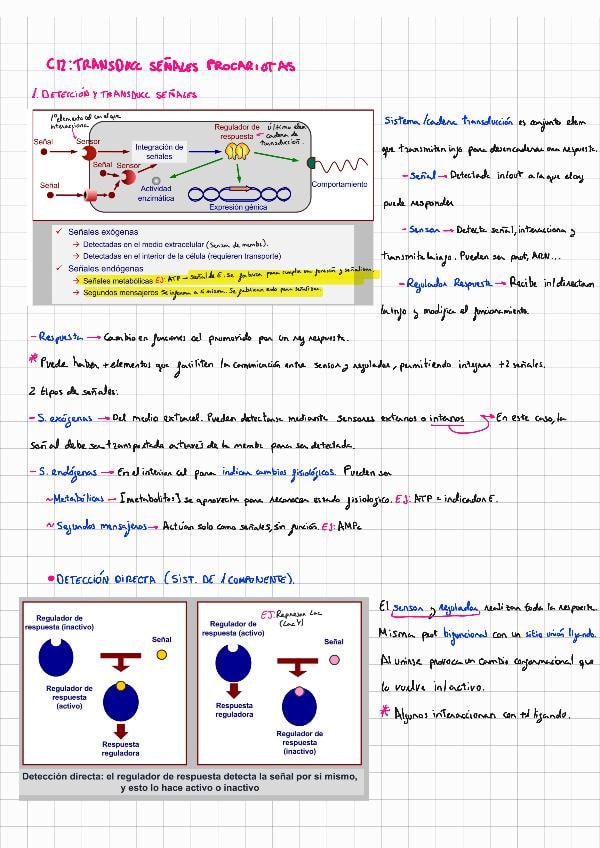 C12: TRANSDUCC SEÑALES PROCARIOTAS
1. DETECCIÓN Y TRANSDUCC SEÑALES
1º elemento cel con el que
interacciona
Señal
Sensor
Señal
Sensor
Señal
Integración de
señales
Regulador de
respuesta
Último elem
cadena de
transducción.
Actividad
enzimática
Expresión génica
Comportamiento
✓ Señales exógenas
→ Detectadas en el medio extracelular (Sensor de membr).
→ Detectadas en el interior de la célula (requieren transporte)
✓ Señales endógenas
→ Señales metabólicas EJ: ATP → señal de E. Se fabrica para cumplir una función y señalizan.
→ Segundos mensajeros Se informa a sí misma. Se fabrican solo para señalizar.
Sistema/cadena transducción es conjunto elem
que transmiten info para desencadenar una respuesta.
- Señal → Detectada in/out a la que
puede responder
- Sensor → Detecta señal, interacciona y
transmite la info. Pueden ser prot, ARN...
- Regulador Respuesta → Recibe in/directam
la info y modifica el funcionamiento.
- Respuesta → Cambio en funciones cel promovido por un reg respuesta.
* Puede haber + elementos que faciliten la comunicación entre sensor y regulador, permitiendo integrar +2 señales.
2 tipos de señales:
- S. exógenas → Del medio extracel. Pueden detectarse mediante sensores externos o internos → En este caso, la
señal debe ser transportada a través de la membr para ser detectada.
- S. endógenas → En el interior cel para indicar cambios fisiológicos. Pueden ser
~ Metabólicas → [metabolitos] se aprovecha para reconocer estado fisiologico. EJ: ATP = indicador E.
~ Segundos mensajeros → Actúan solo como señales, sin función. EJ: AMPc
• DETECCIÓN DIRECTA (SIST. DE 1 COMPONENTE).
Regulador de
respuesta (inactivo)
Señal
Regulador de
respuesta
(activo)
Respuesta
reguladora
EJ: Represor Lac
(Lac Y)
Regulador de
respuesta (activo)
Señal
Respuesta
reguladora
Regulador de
respuesta
(inactivo)
Detección directa: el regulador de respuesta detecta la señal por si mismo,
y esto lo hace activo o inactivo
El sensor y regulador realizan toda la respuesta.
Misma prot bifuncional con un sitio unión ligando.
Al unirse provoca un cambio conformacional que
lo vuelve in/activo.
* Algunos interaccionan con +1 ligando.